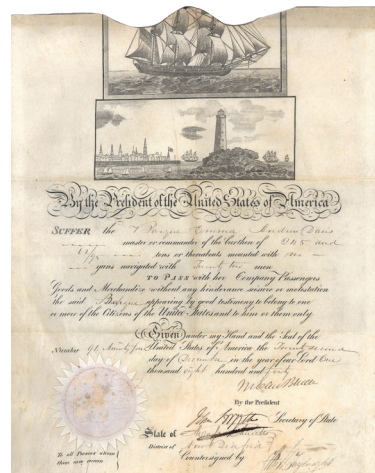 By the President of the United States of America
SUFFER the Barque Emma Andrew Davis
master or commander of the burthen of 245 and
tons or thereabouts mounted with no
guns navigated with Twenty two men
TO PASS with her Company Passengers
Goods and Merchandize without any hinderance seisure or molestation
the said Barque appearing by good testimony to belong to one
or more of the Citizens of the United States and to him or them only
Given under my Hand and the Seal of the
Number United States of America the Twenty second
day of December in the year of our Lord One
thousand eight hundred and forty
By the President
John Forsyth Secretary of State
State of
District of
Countersigned by
To all Persons whom
these may concern